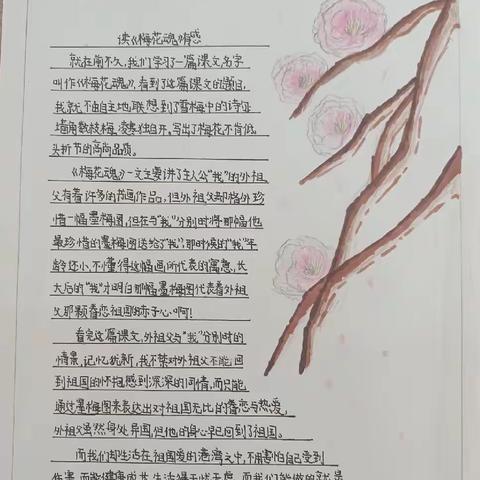 读《梅花魂》有感
就在前不久,我们学习了一篇课文,名字
叫作《梅花魂》,看到了这篇课文的题目,
我就不由自主地联想到了雪梅中的诗句
墙角数枝梅,凌寒独自开,写出了梅花不肯低
头折节的高尚品质。
《梅花魂》一文主要讲了主人公“我”的外祖
父有着许多的书画作品,但外祖父却格外珍
惜一幅墨梅图,但在与“我”分别时将那幅他
最珍惜的墨梅图送给了“我”,那时候的“我”年
龄还小,不懂得这幅画所代表的寓意,长
大后的“我”才明白那幅墨梅图代表着外祖
父那颗眷恋祖国的赤子心啊!
看完这篇课文,外祖父与“我”分别时的
情景,记忆犹新,我不禁对外祖父不能回
到祖国的怀抱感到深深的同情,而只能
通过墨梅图来表达出对祖国无比的眷恋与热爱,
外祖父虽然身处异国,但他的身心早已回到了祖国。
而我们却生活在祖国爱的港湾之中,不用害怕自己受到
伤害,而我们能做的就是